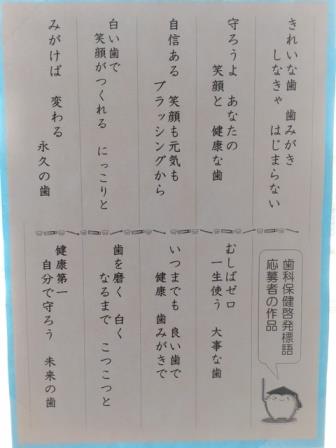 きれいな歯 歯みがき
しなきゃ はじまらない
守ろうよ あなたの
笑顔と 健康な歯
自信ある 笑顔も元気も
ブラッシングから
白い歯で
笑顔がつくれる にっこりと
みがけば 変わる
永久の歯
歯科保健啓発標語
応募者の作品
むしばゼロ
一生使う 大事な歯
いつまでも 良い歯で
健康 歯みがきで
歯を磨く 白く
なるまで こつこつと
健康第一
自分で守ろう 未来の歯